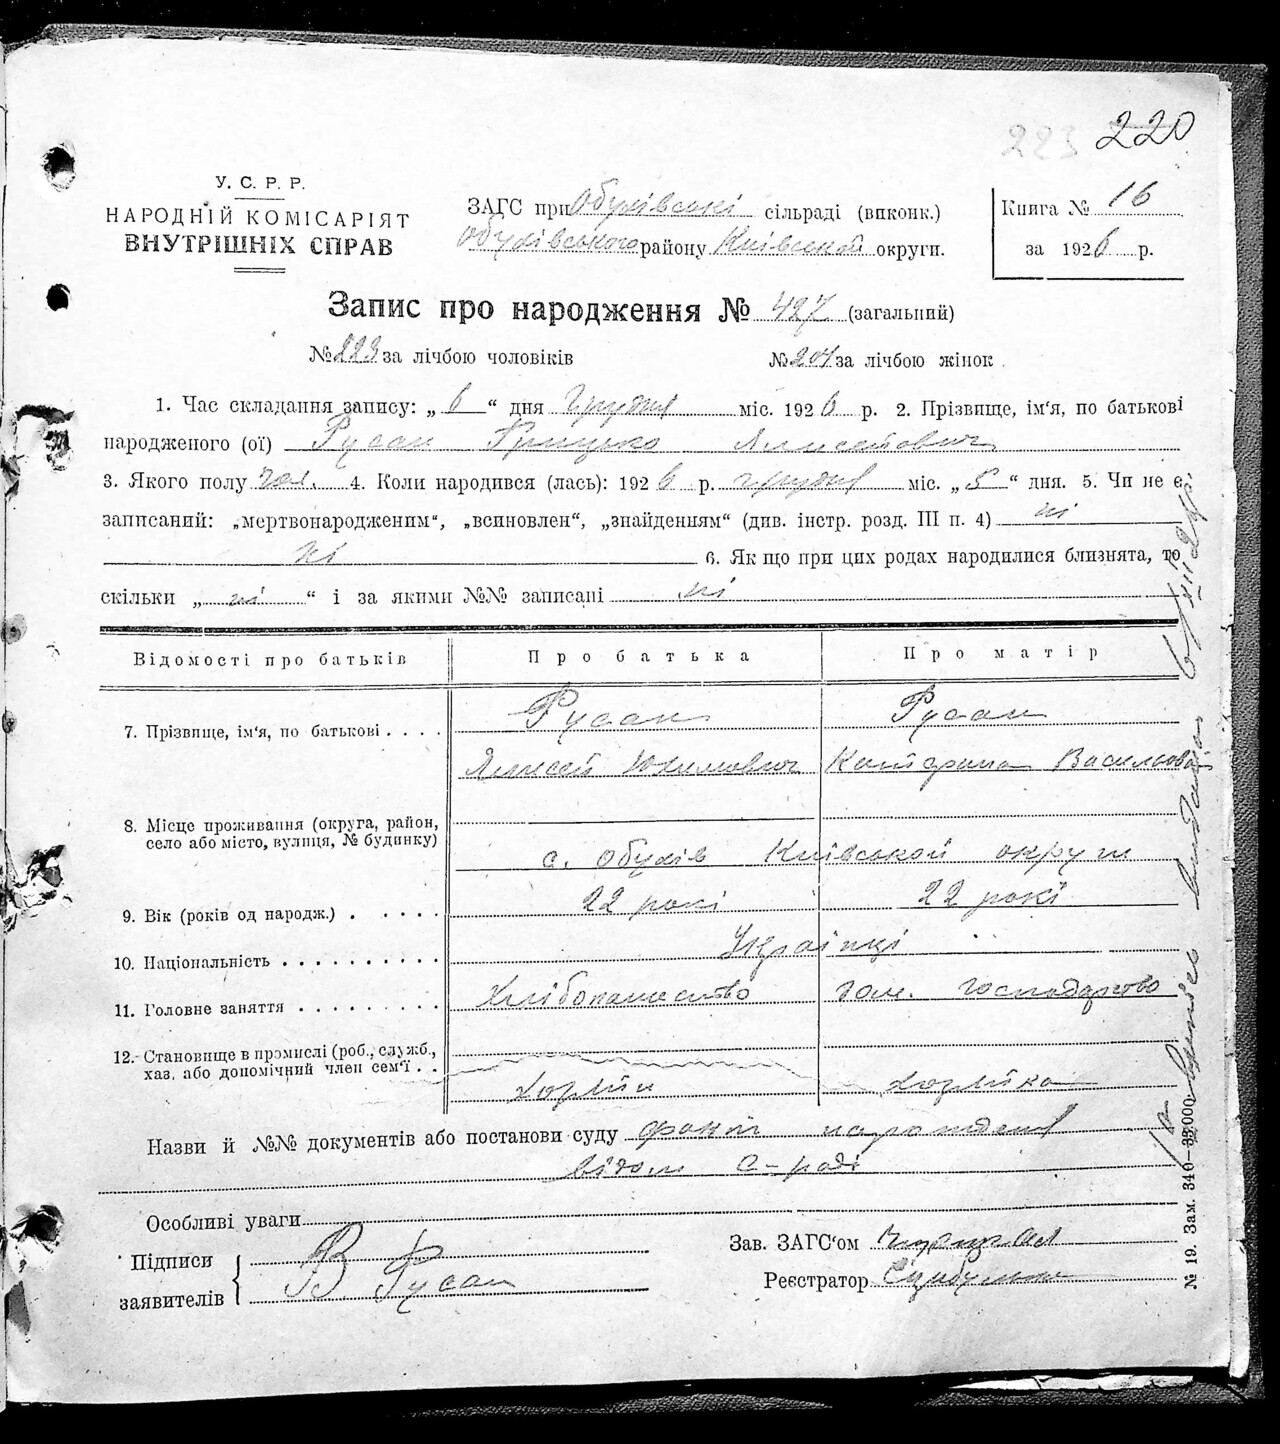 223 220
У. С. Р. Р.
НАРОДНІЙ КОМІСАРІЯТ
ВНУТРІШНІХ СПРАВ
ЗАГС при Обухівські сільраді (виконк.)
Обухівського району Київської округи.
Книга № 16
за 1926 р.
Запис про народження № 427 (загальний)
№ 223 за лічбою чоловіків № 204 за лічбою жінок.
1. Час складання запису: „6“ дня грудня міс. 1926 р. 2. Прізвище, ім‘я, по батькові
народженого (ої) Русан Грицько Ялисейович
3. Якого полу чол. 4. Коли народився (лась): 1926 р. грудня міс. „5“ дня. 5. Чи не є
записаний: „мертвонародженим“, „всиновлен“, „знайденням“ (див. інстр. розд. III п. 4) ні
ні 6. Як що при цих родах народилися близнята, то
скільки „ні“ і за якими №№ записані ні
Відомості про батьків Про батька Про матір
7. Прізвище, ім‘я, по батькові . . . . Русан Русан
Ялисей Юхимович Катерина Васильовна
8. Місце проживання (округа, район,
село або місто, вулиця, № будинку)
с. Обухів Київської округи
9. Вік (років од народж.) . . . . . 22 рокі 22 рокі
10. Національність . . . . . . . . . . Українці
11. Головне заняття . . . . . . . . . Хлібопашество дом. господарство
12. Становище в промислі (роб., служб.,
хаз. або допомічний член сем‘ї . .
хозяїн хозяйка
Назви й №№ документів або постанови суду факт народження
відом с-раді
Особливі уваги
Підписи
заявителів
В Русан
Зав. ЗАГС‘ом
Реєстратор Сцибульник
№ 19. Зам. 340—33.000.